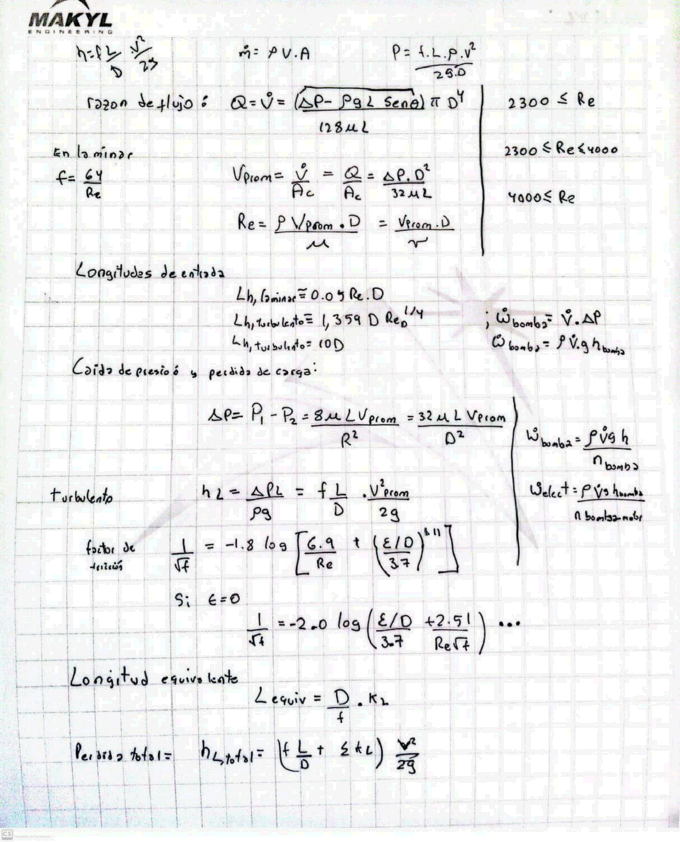 MAKYL
ENGINEERING
h=f L/D V²/2g    ṁ= ρV.A    P= f.L.ρ.V²/2g.D
razon de flujo: Q=V̇= (ΔP- ρgL senθ) π D⁴/128μL    2300 ≤ Re
En laminar    2300 ≤ Re ≤ 4000
f= 64/Re    Vprom= V̇/Ac = Q/Ac = ΔP.D²/32μL    4000 ≤ Re
Re= ρ Vprom . D/μ = Vprom. D/ν
Longitudes de entrada
Lh, laminar ≅ 0.05 Re.D
Lh, turbulento = 1,359 D Re_D^1/4    ; Ẇbomba= V̇. ΔP
Lh, turbulento= 10D    Ẇbomba= ρV̇.g hbomba
Caida de presió y perdida de carga:
ΔP= P₁ - P₂ = 8μLVprom/R² = 32μLVprom/D²    Ẇbomba = ρV̇g h/ηbomba
turbulento    hL = ΔPL/ρg = f L/D . V²prom/2g    Welect = ρV̇g hbomba/η bomba-motor
factor de fricción    1/√f = -1.8 log [6.9/Re + (ε/D/3.7)^1.11]
Si ε=0
1/√f = -2.0 log (ε/D/3.7 +2.51/Re√f) ...
Longitud equivalente
Lequiv = D/f . KL
Perdida total= hL,total= (f L/D + Σ KL) V²/2g